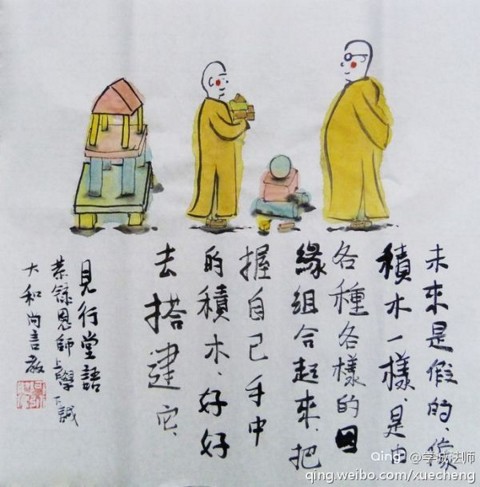 未來是假的、像
積木一樣、是由
各種各樣的因
緣組合起來、把
握自己手中
的積木、好好
去搭建它、
見行堂語
恭錄恩師上學下誠
大和尚言教
Qing @学诚法师
qing.weibo.com/xuecheng